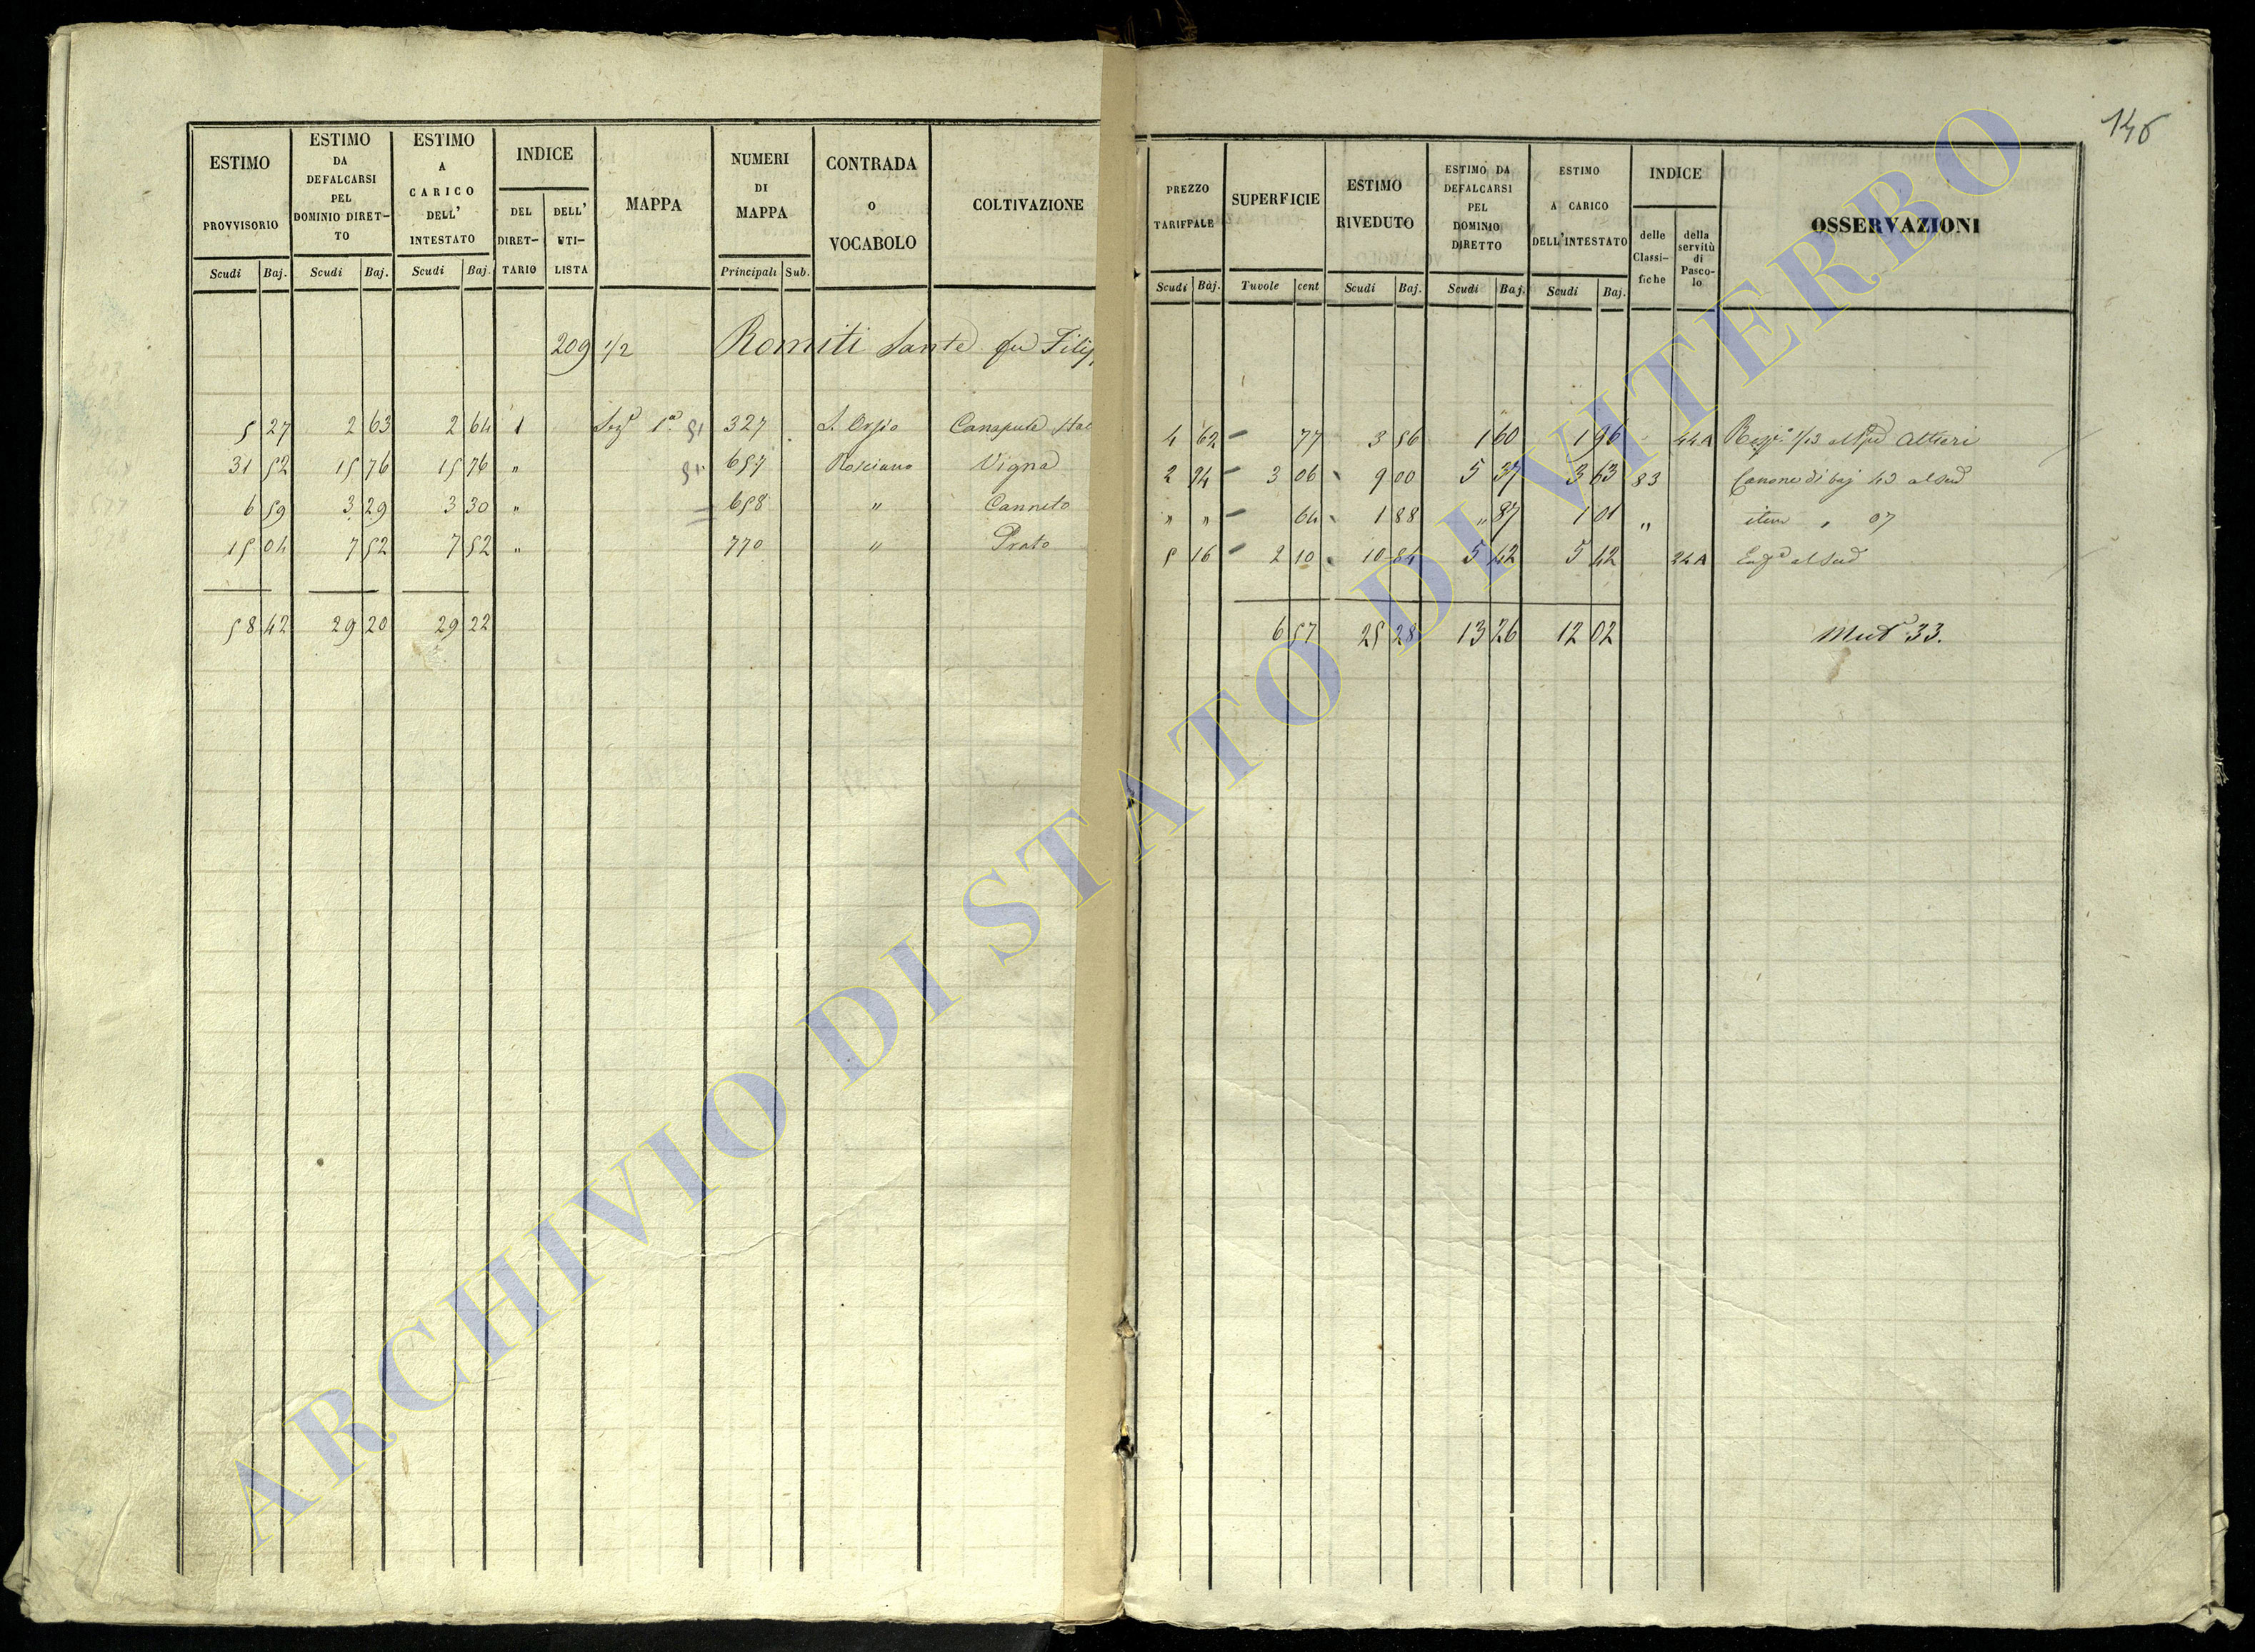 146
ESTIMO PROVVISORIO Scudi Baj.
ESTIMO DA DEFALCARSI PEL DOMINIO DIRET-TO Scudi Baj.
ESTIMO A CARICO DELL' INTESTATO Scudi Baj.
INDICE DEL DIRET-TARIO DELL' UTI-LISTA
MAPPA
NUMERI DI MAPPA Principali Sub.
CONTRADA O VOCABOLO
COLTIVAZIONE
PREZZO TARIFFALE Scudi Baj.
SUPERFICIE Tavole cent
ESTIMO RIVEDUTO Scudi Baj.
ESTIMO DA DEFALCARSI PEL DOMINIO DIRETTO Scudi Baj.
ESTIMO A CARICO DELL'INTESTATO Scudi Baj.
INDICE delle Classi-fiche della servitù di Pasco-lo
OSSERVAZIONI
209 1/2 Romiti Sante fu Filip
5 27 2 63 2 64 1 Sezⁿ 1ª 327 S. Orsio Canapule 4 62 77 3 56 1 60 1 96 44A 1/13 Altieri
31 52 15 76 15 76 " 657 Rosciano Vigna 2 94 3 06 9 00 5 37 3 63 83 Canone di baj 43 al sud
6 59 3 29 3 30 " 658 " Canneto " " 64 1 88 " 87 1 01 " item " 07
15 04 7 52 7 52 " 770 " Prato 5 16 2 10 10 84 5 42 5 42 24A al sud
58 42 29 20 29 22 6 57 25 28 13 26 12 02 Mutª 33.
ARCHIVIO DI STATO DI VITERBO